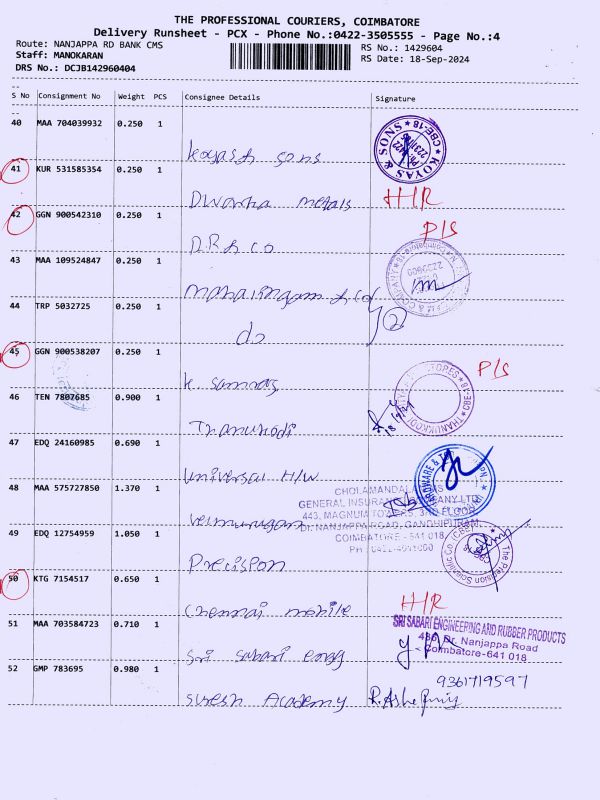 THE PROFESSIONAL COURIERS, COIMBATORE
Delivery Runsheet - PCX - Phone No.:0422-3505555 - Page No.:4
Route: NANJAPPA RD BANK CMS
RS No.: 1429604
Staff: MANOKARAN
RS Date: 18-Sep-2024
DRS No.: DCJB142960404
S No Consignment No Weight PCS Consignee Details Signature
40 MAA 704039932 0.250 1
Koyas & sons
KOYAS & SONS CBE-18
41 KUR 531585354 0.250 1
Dwarka metals H/R
42 GGN 900542310 0.250 1
D.R & Co P/S
43 MAA 109524847 0.250 1
Mahalingam & Co
44 TRP 5032725 0.250 1
do 2
45 GGN 900538207 0.250 1
K. P/S
46 TEN 7807685 0.900 1
Thanukodi
47 EDQ 24160985 0.690 1
Universal H/W
48 MAA 575727850 1.370 1
Velmurugan
CHOLAMANDALAM MS
GENERAL INSURANCE COMPANY LTD.
443, MAGNUM TOWERS, 3RD FLOOR
Dr. NANJAPPA ROAD, GANDHIPURAM,
COIMBATORE - 641 018
49 EDQ 12754959 1.050 1
Precision
The Precision Scientific Co. (CBE)
50 KTG 7154517 0.650 1
Chennai mobile H/R
51 MAA 703584723 0.710 1
Sri Sabari engg
SRI SABARI ENGINEERING AND RUBBER PRODUCTS
Dr. Nanjappa Road
Coimbatore-641 018
52 GMP 783695 0.980 1
9361719597
Suresh Academy